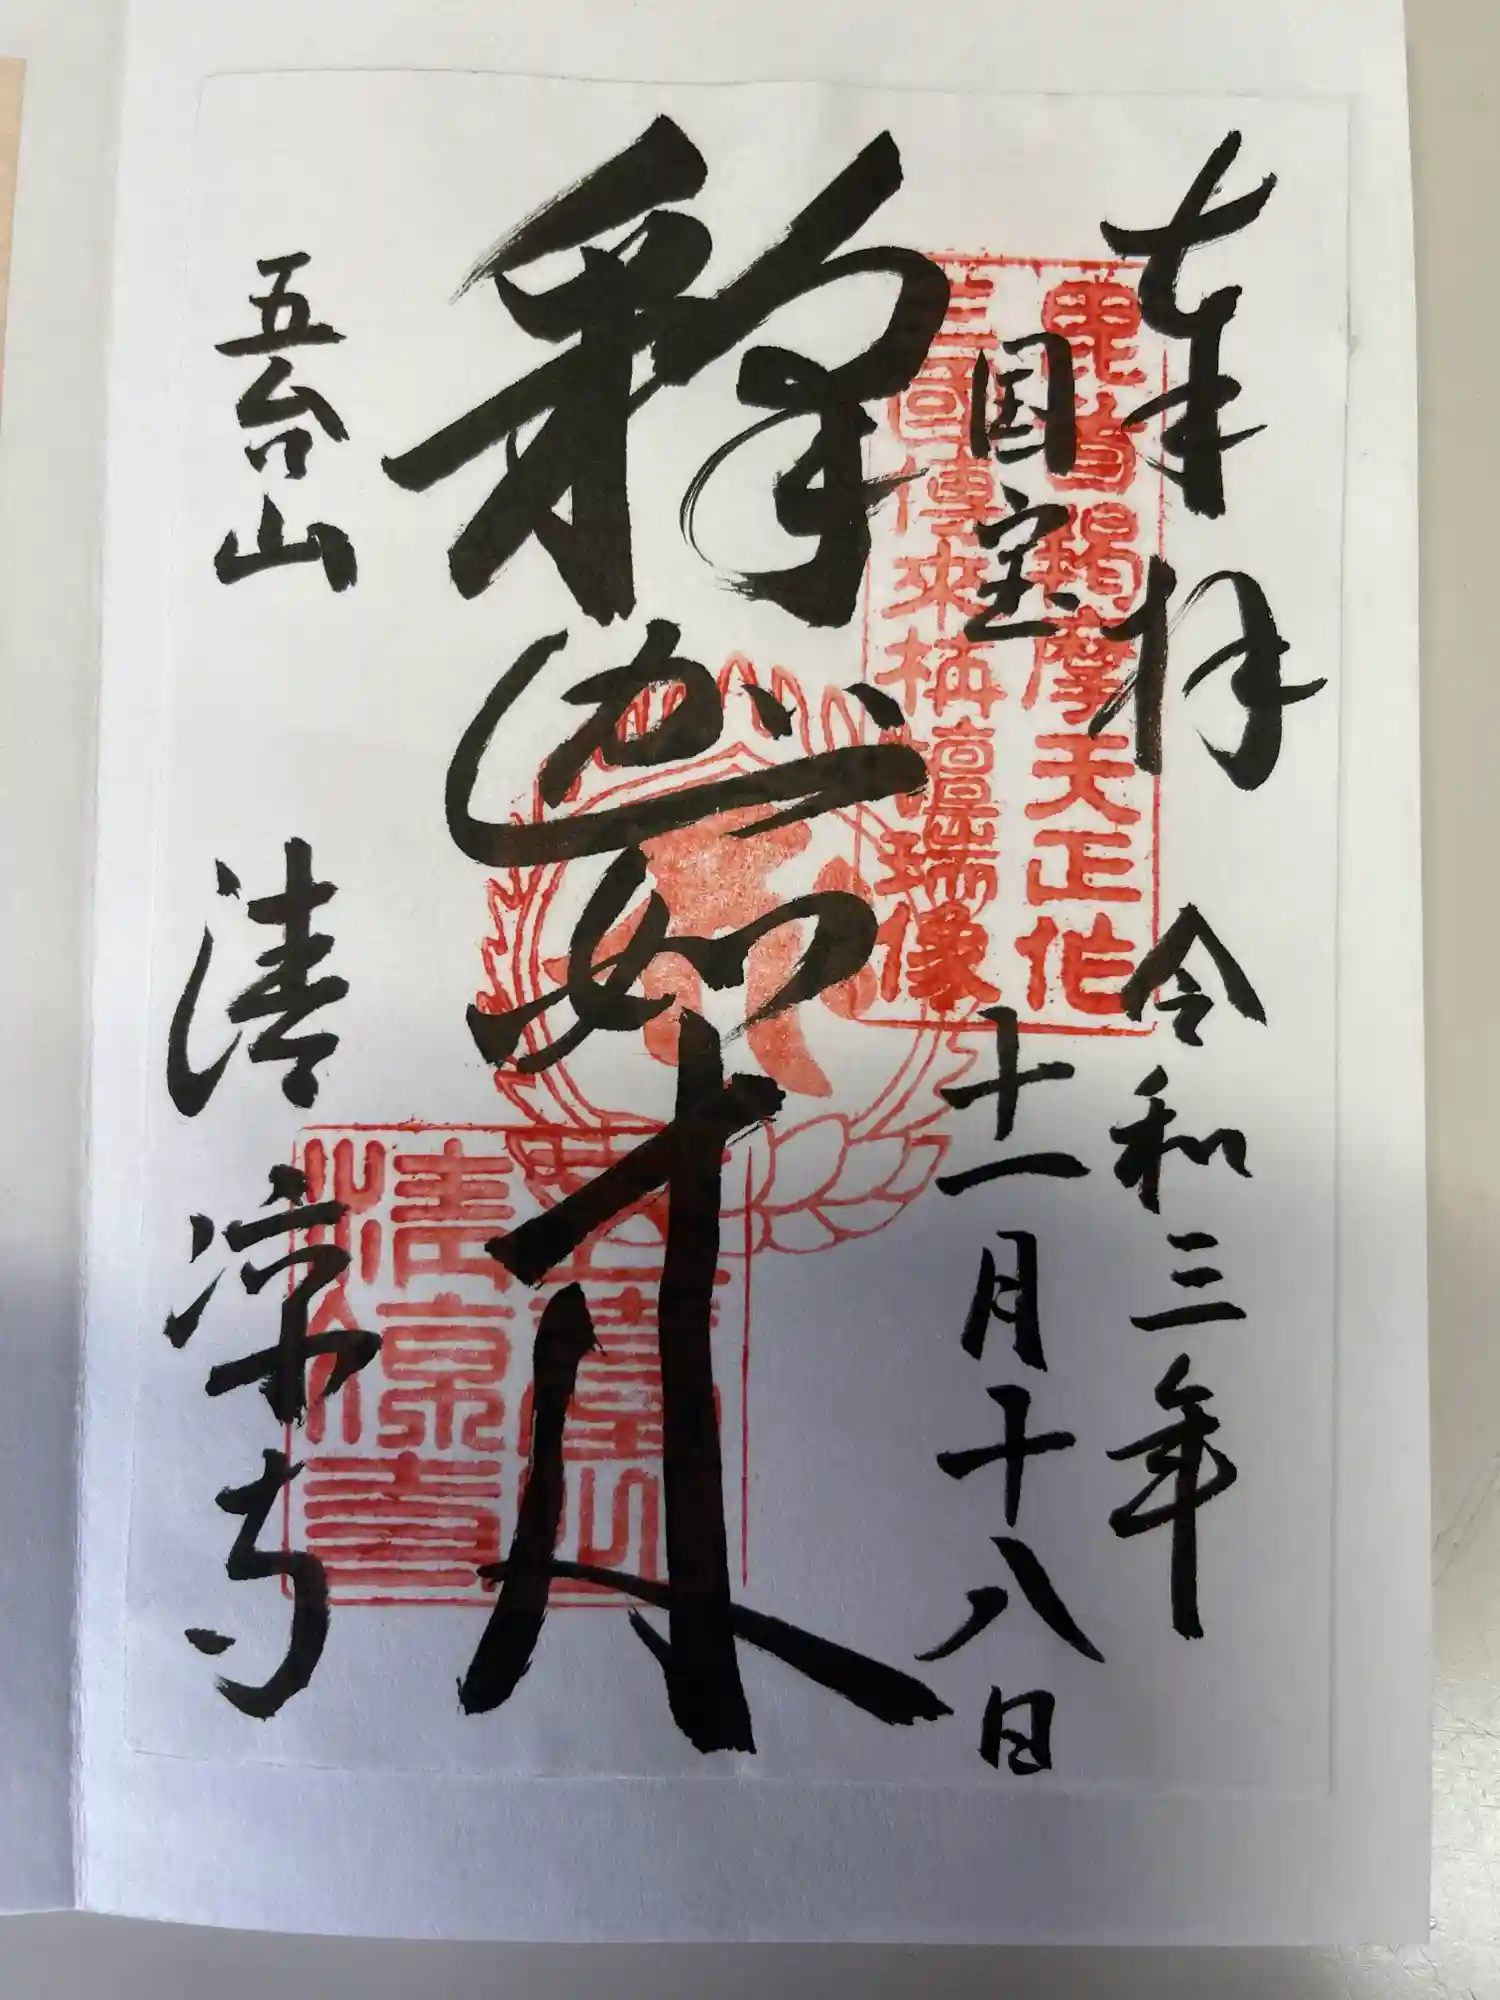 奉拝 令和三年
国宝 十一月十八日
毘首羯摩天正作
三國傳来栴檀瑞像
釋迦如来
五台山 清凉寺
五臺山
清凉寺